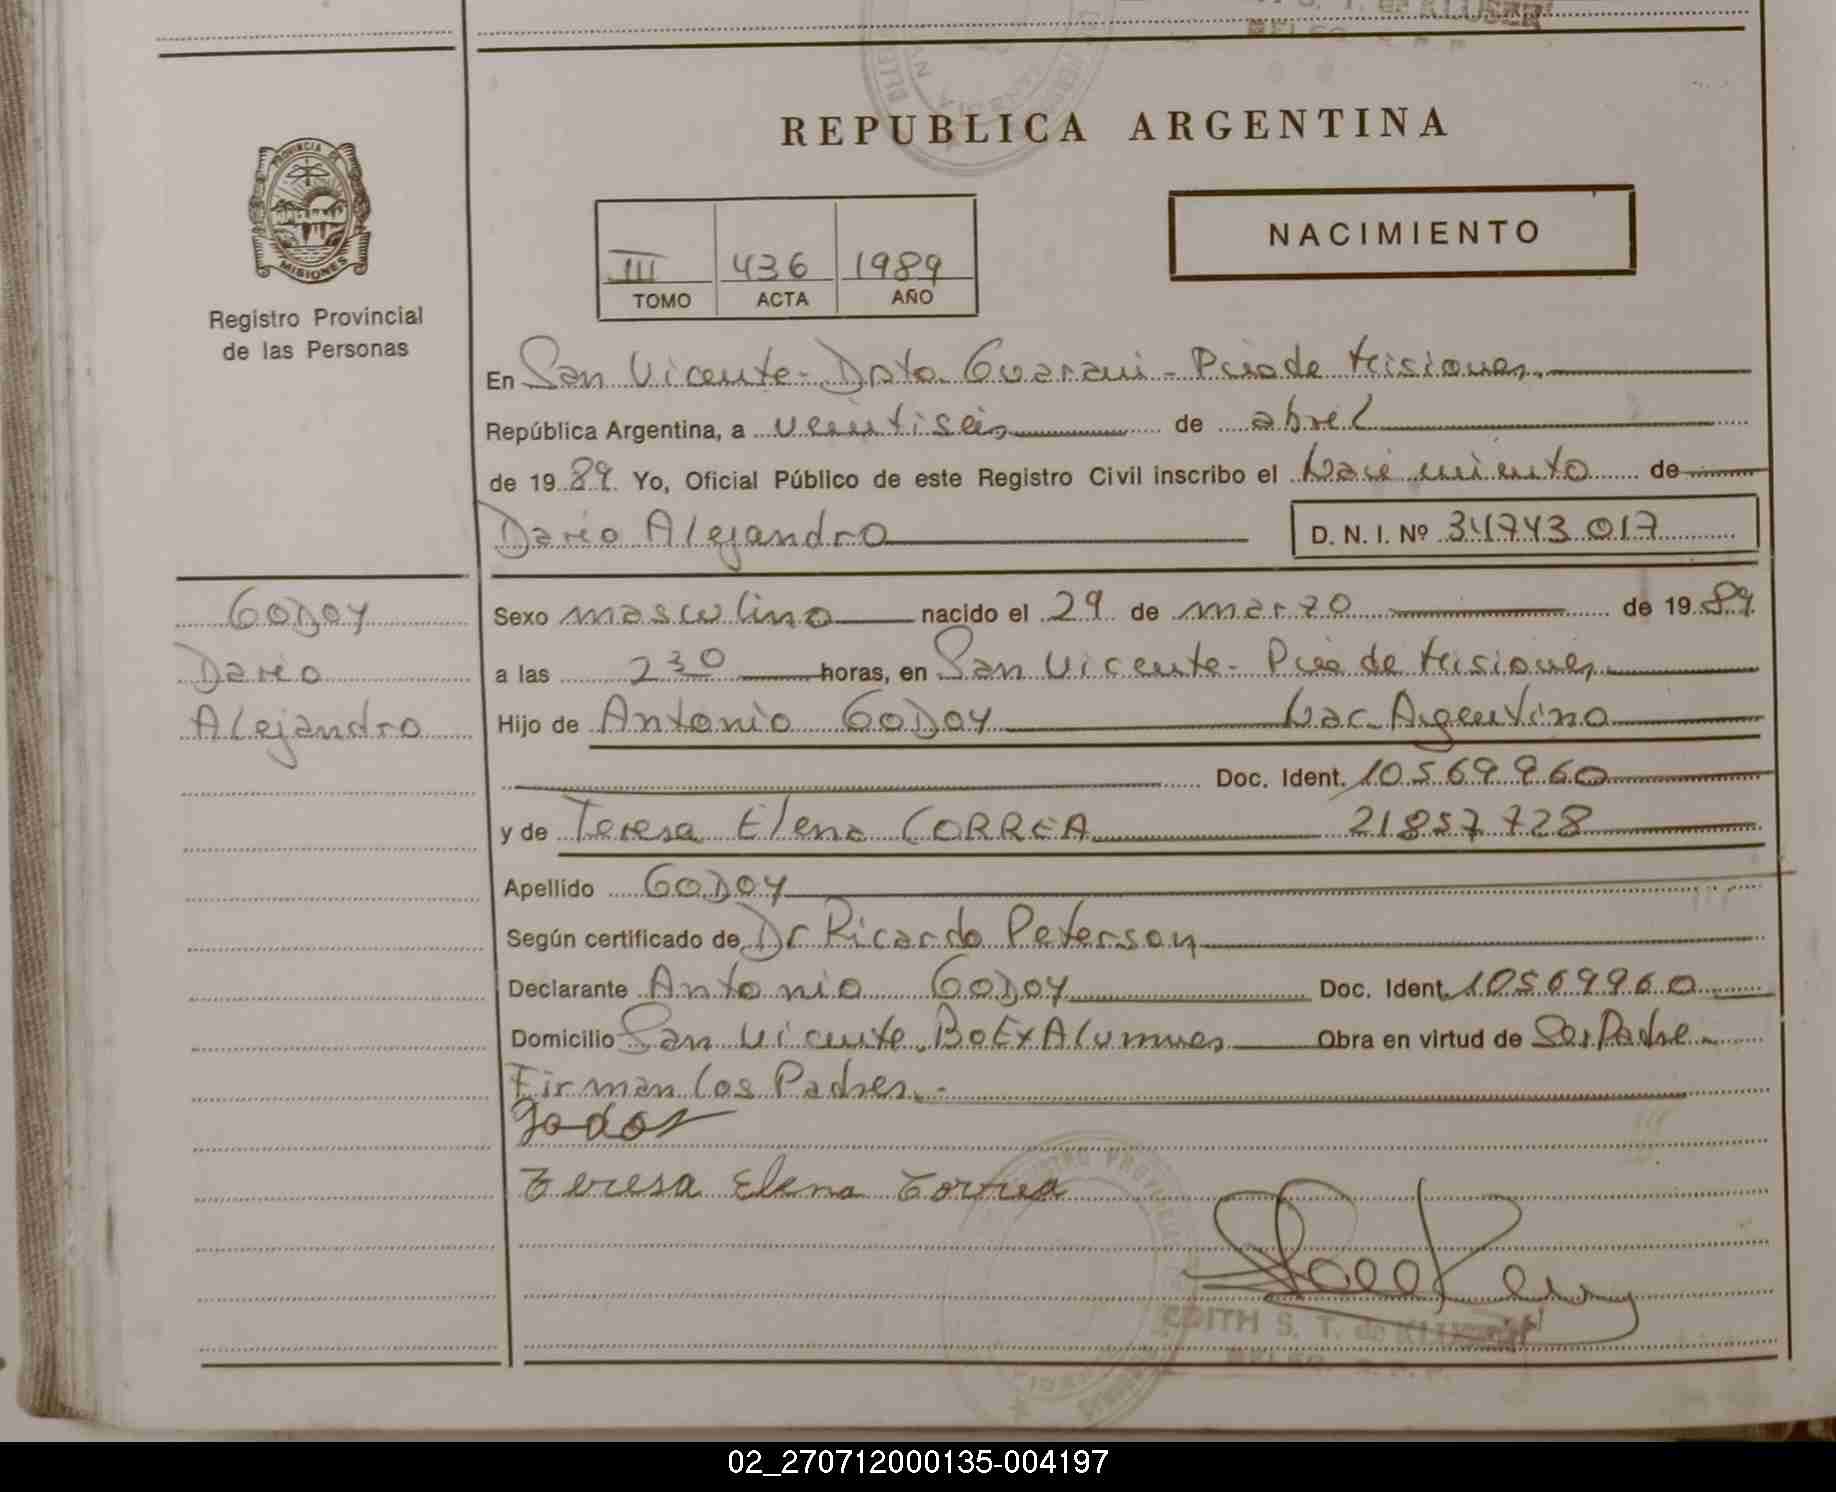 S. T. de KLUSER
REPUBLICA ARGENTINA
PROVINCIA DE
MISIONES
Registro Provincial
de las Personas
NACIMIENTO
III 436 1989
TOMO ACTA AÑO
En San Vicente - Dpto. Guarani - Pcia de Misiones.
República Argentina, a veintiseis de abril
de 1989 Yo, Oficial Público de este Registro Civil inscribo el Nacimiento de
Dario Alejandro D. N. I. Nº 34743017
GODOY
Dario
Alejandro
Sexo masculino nacido el 29 de marzo de 1989
a las 2 30 horas, en San Vicente - Pcia de Misiones
Hijo de Antonio GODOY Nac. Argentino
Doc. Ident. 10569960
y de Teresa Elena CORREA 21857728
Apellido GODOY
Según certificado de Dr Ricardo Peterson
Declarante Antonio GODOY Doc. Ident. 10569960
Domicilio San Vicente. Bo Ex Alumnos Obra en virtud de Ser Padre
Firman los Padres.-
godoy
Teresa Elena Correa
EDITH S. T. de KLUSER
02_270712000135-004197